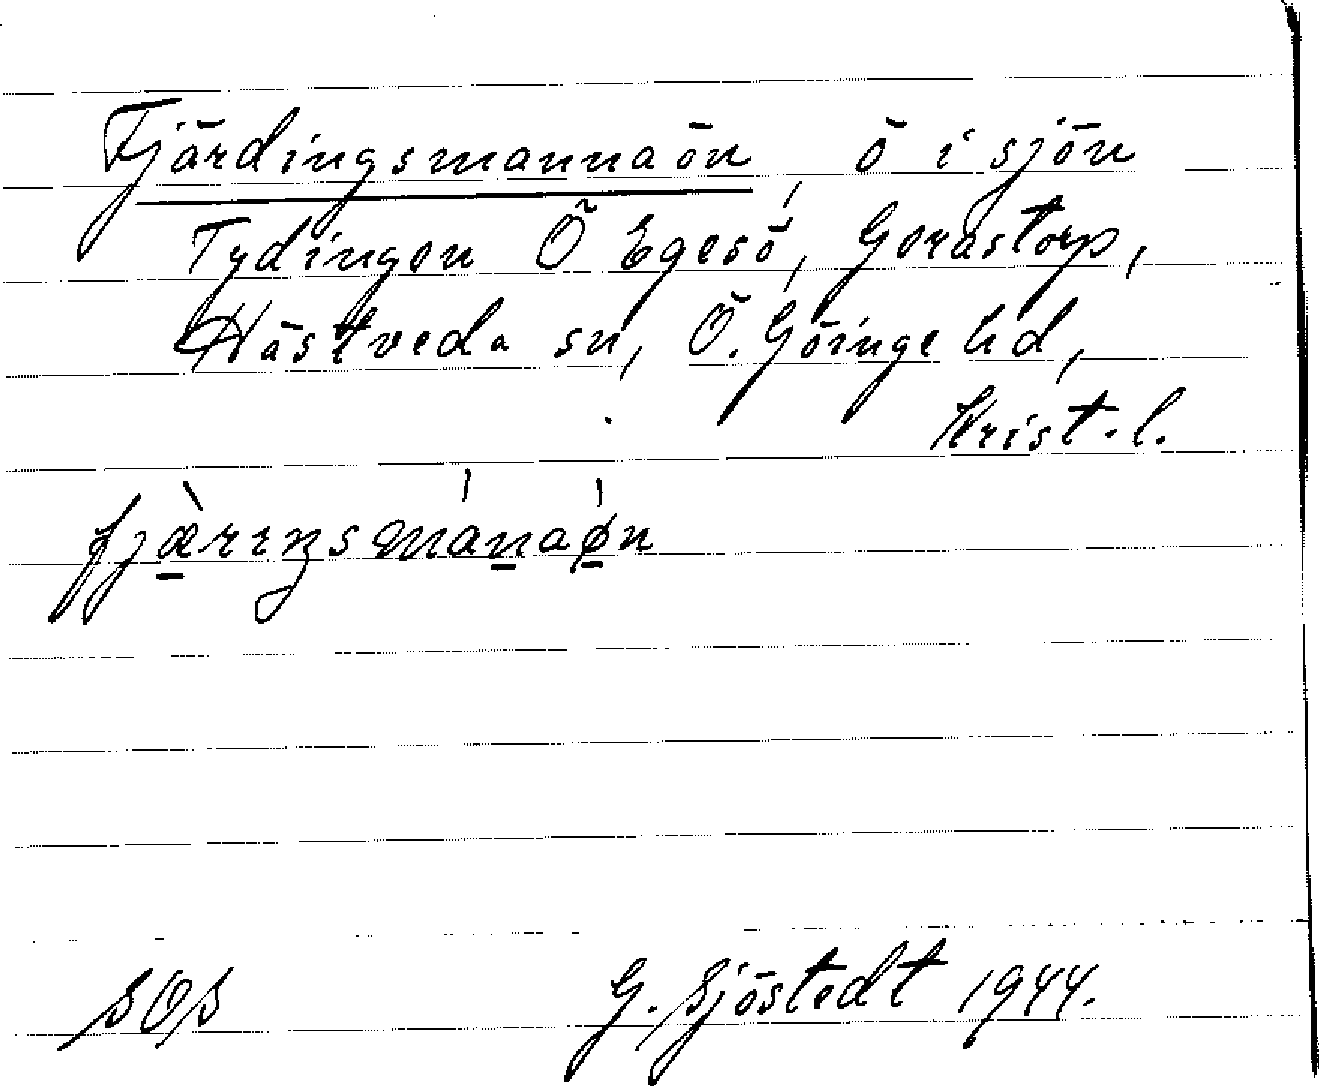 Fjärdingsmannaön, ö i sjön
Tydingen Ö Egesö, Gorastorp,
Hästveda sn, Ö. Göinge hd,
Krist. l.
fjæ̀rıŋsmánaǿn
SOS G. Sjöstedt 1944.